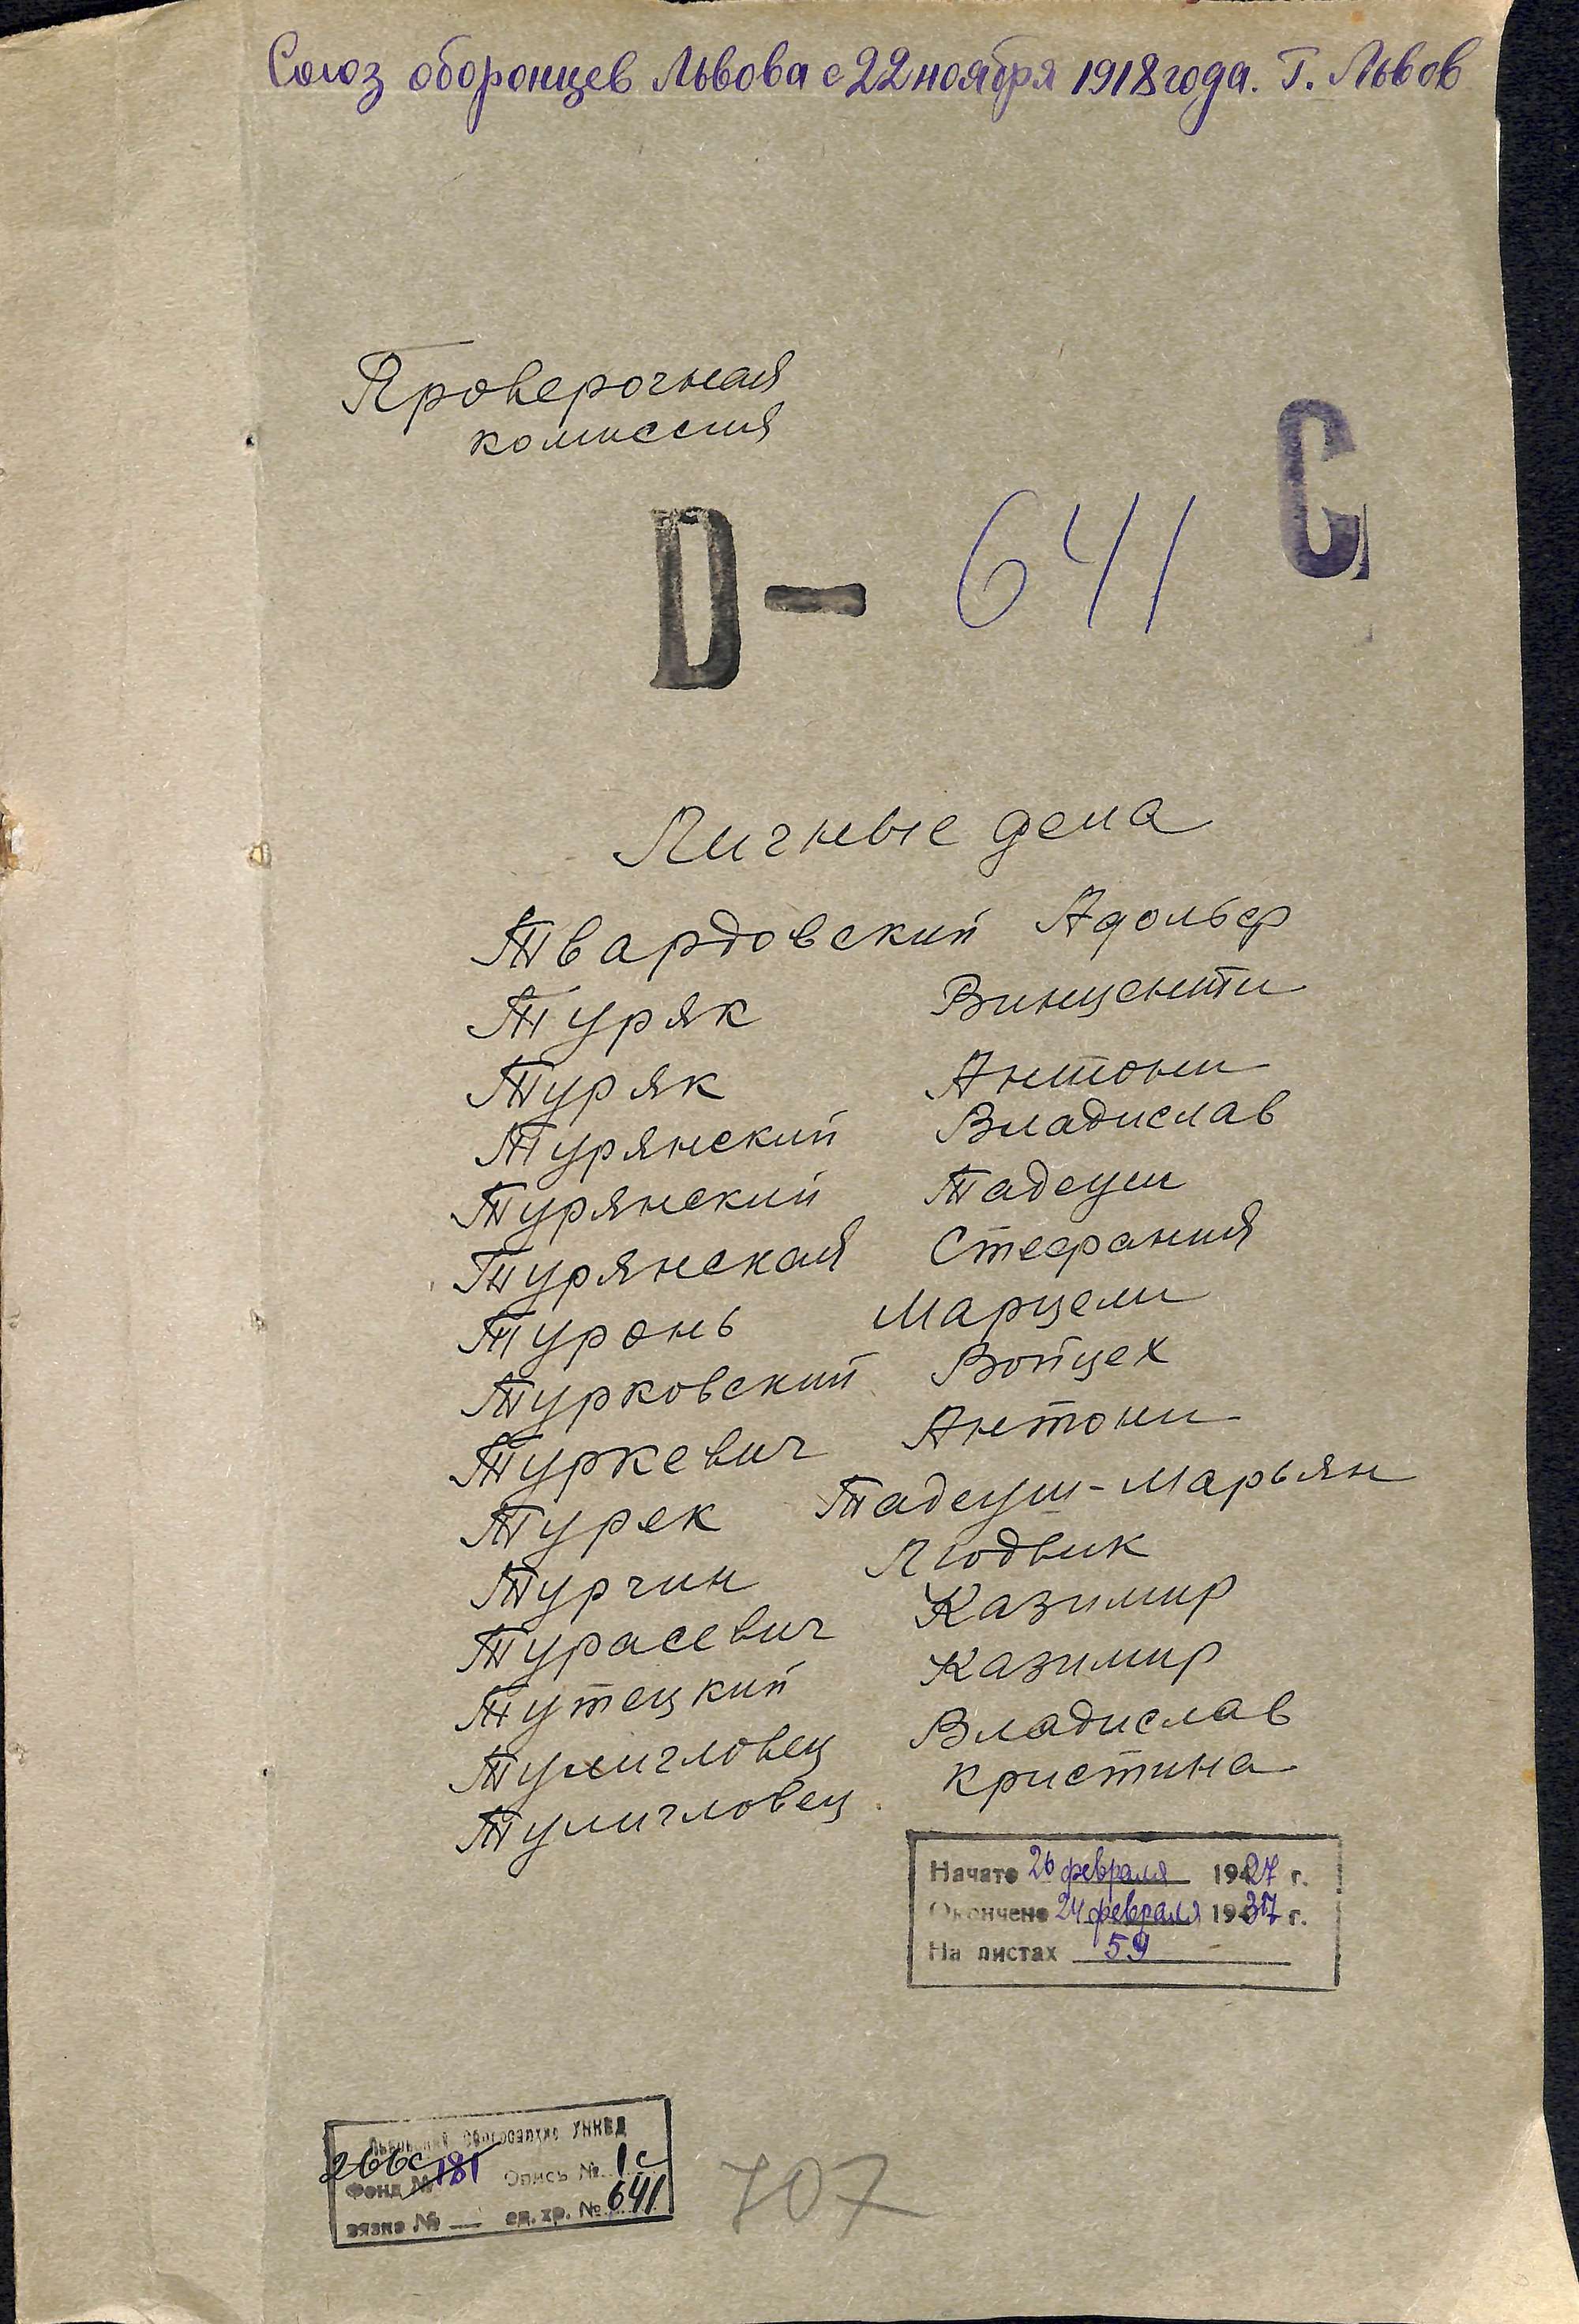 Союз оборонцев Львова с 22 ноября 1918 года. Г. Львов
Проверочная
комиссия
С
D — 641
Личные дела
Твардовский Адольф
Туряк Винценти
Туряк Антони
Турянский Владислав
Турянский Тадеуш
Турянская Стефания
Туронь Марцели
Турковский Войцех
Туркевич Антони
Турек Тадеуш-Марьян
Турчин Людвик
Турасевич Казимир
Тутецкий Казимир
Тулигловец Владислав
Тулигловец Кристина
Начато 26 февраля 1927 г.
Окончено 24 февраля 1937 г.
На листах 59
Львовский Облгосархив УНКВД
266с
Фонд № 181 Опись № 1с
вязка № — ед. хр. № 641
707